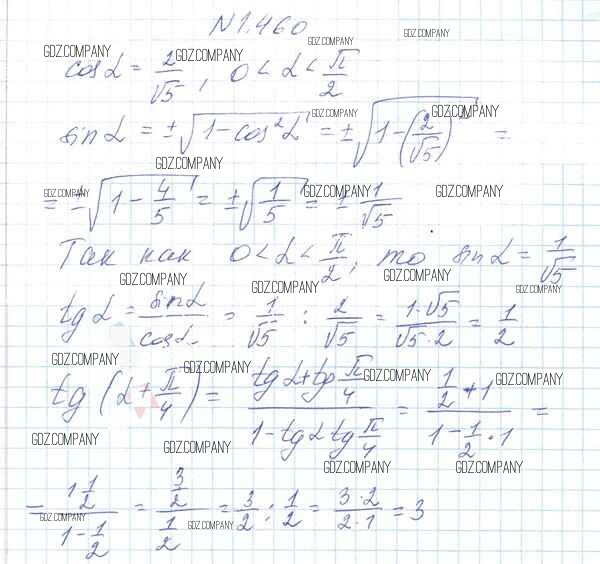 N1.460
GDZ.COMPANY GDZ.COMPANY GDZ.COMPANY GDZ.COMPANY
cos α = 2/√5, 0 < α < π/2
GDZ.COMPANY GDZ.COMPANY
sin α = ±√(1 - cos²α) = ±√(1 - (2/√5)²) =
GDZ.COMPANY
GDZ.COMPANY GDZ.COMPANY GDZ.COMPANY
= ±√(1 - 4/5) = ±√(1/5) = ± 1/√5
Так как 0 < α < π/2, то sin α = 1/√5
GDZ.COMPANY GDZ.COMPANY GDZ.COMPANY
tg α = sin α/cos α = 1/√5 : 2/√5 = 1·√5/√5·2 = 1/2
GDZ.COMPANY GDZ.COMPANY GDZ.COMPANY GDZ.COMPANY
tg (α + π/4) = (tg α + tg π/4)/(1 - tg α tg π/4) = (1/2 + 1)/(1 - 1/2 · 1) =
GDZ.COMPANY GDZ.COMPANY GDZ.COMPANY GDZ.COMPANY
= (1 1/2)/(1 - 1/2) = (3/2)/(1/2) = 3/2 : 1/2 = 3·2/2·1 = 3
GDZ.COMPANY GDZ.COMPANY